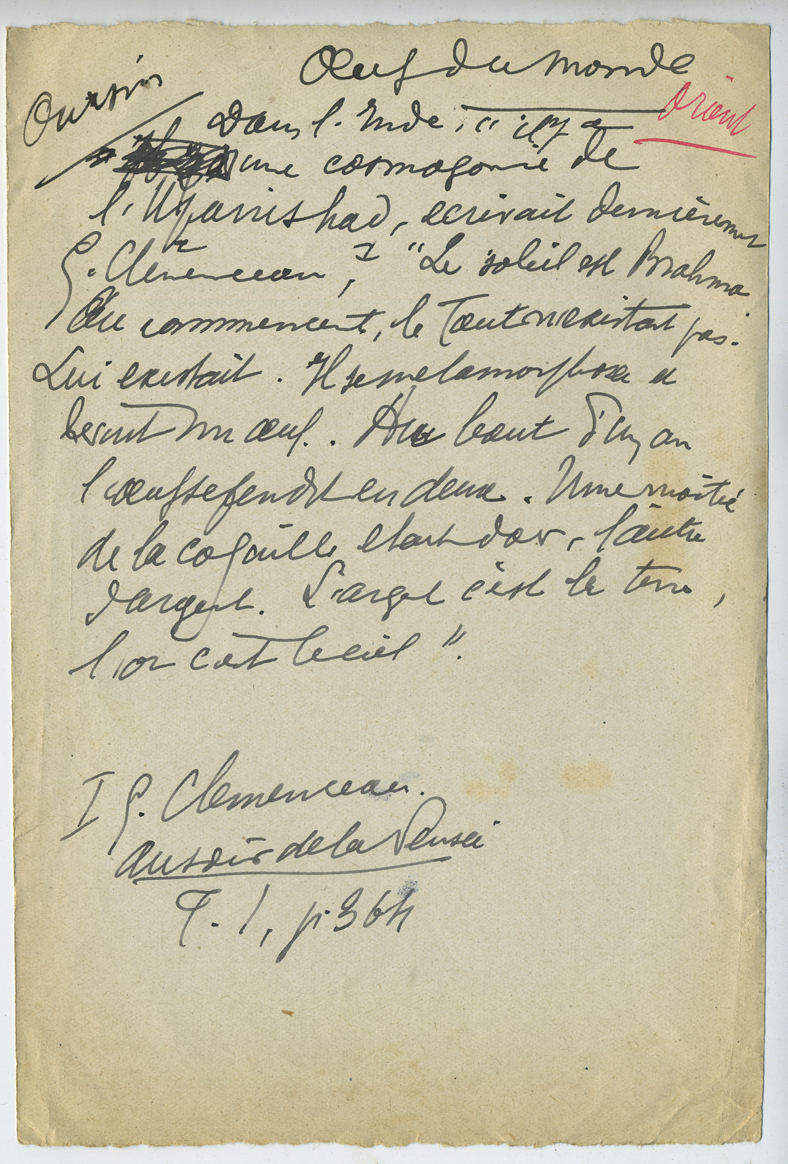 Œuf du monde
Oursin
Orient
Dans l'Inde, " il y a
une cosmogonie de
l'Upanishad, écrivait dernièrement
G. Clémenceau, I "Le soleil est Brahma
Au commencement, le Tout n'existait pas.
Lui existait. Il se métamorphosa et
devint un œuf. Au bout d'un an
l'œuf se fendit en deux. Une moitié
de la coquille était d'or, l'autre
d'argent. L'argent c'est la terre,
l'or c'est le ciel ".
I G. Clemenceau.
Au soir de la Pensée
T. 1, p. 364